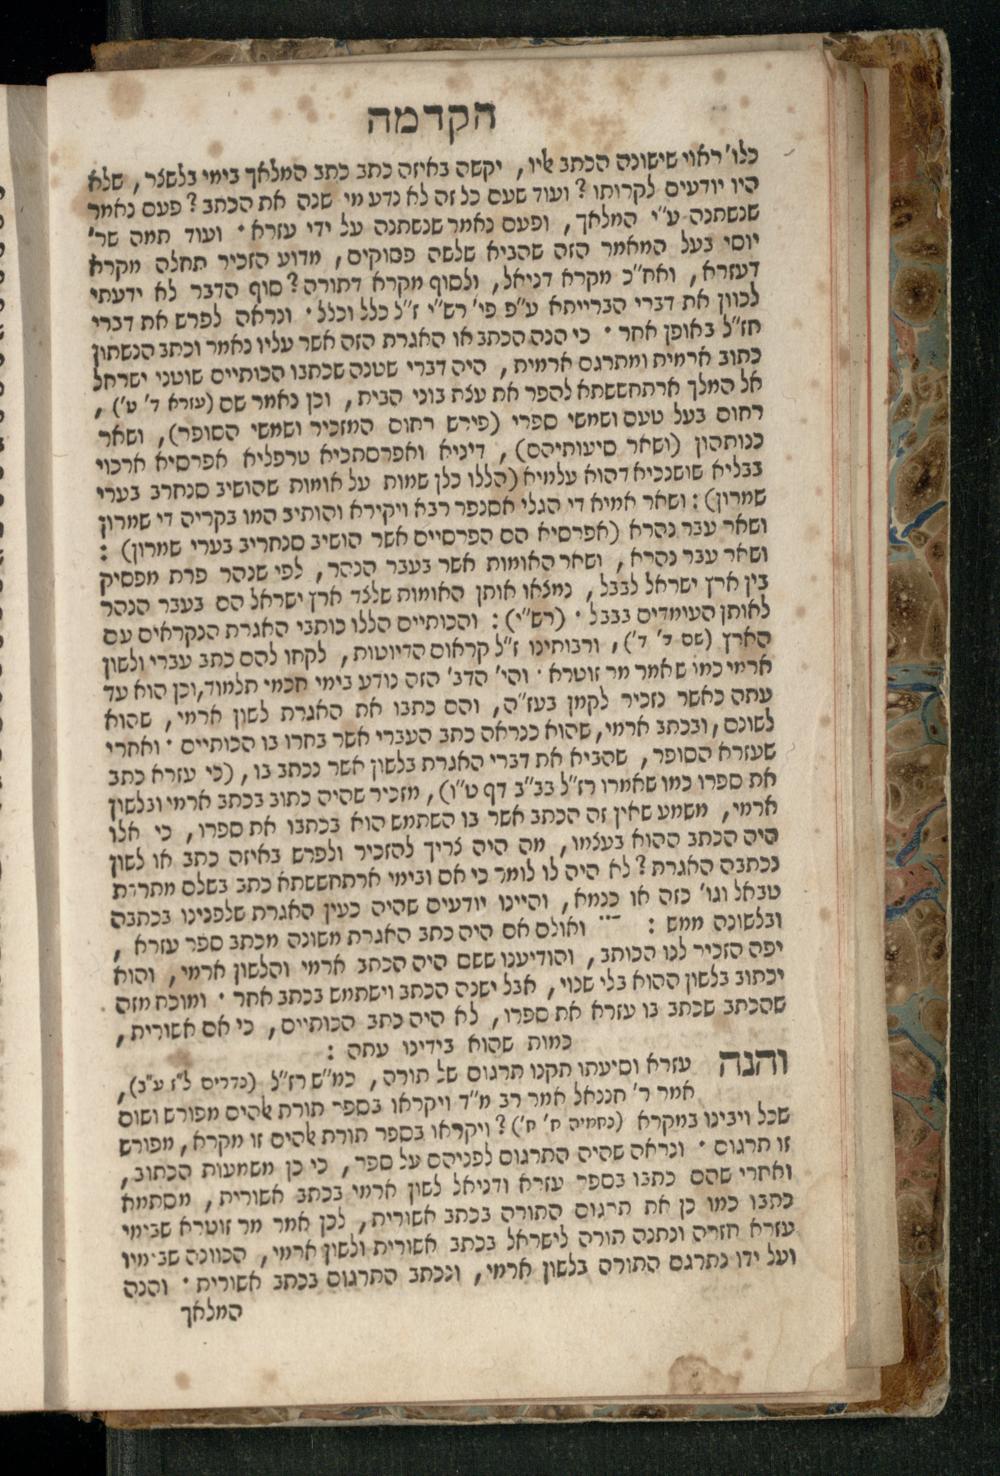 הקדמה
כלו' ראוי שישונה הכתב עליו, יקשה באיזה כתב כתב המלאך בימי בלשצר, שלא
היו יודעים לקרותו? ועוד שעם כל זה לא נדע מי שנה את הכתב? פעם נאמר
שנשתנה ע"י המלאך, ופעם נאמר שנשתנה על ידי עזרא · ועוד תמה שר'
יוסי בעל המאמר הזה שהביא שלשה פסוקים, מדוע הזכיר תחלה מקרא
דעזרא, ואח"כ מקרא דניאל, ולסוף מקרא דתורה? סוף הדבר לא ידעתי
לכוון את דברי הברייתא ע"פ פי' רש"י ז"ל כלל וכלל · ונראה לפרש את דברי
חז"ל באופן אחר · כי הנה הכתב או האגרת הזה אשר עליו נאמר וכתב הנשתון
כתוב ארמית ומתרגם ארמית, היה דברי שטנה שכתבו הכותיים שוטני ישראל
אל המלך ארתחששתא להפר את עצת בוני הבית, וכן נאמר שם (עזרא ד' ט'),
רחום בעל טעם ושמשי ספרי (פירש רחום המזכיר ושמשי הסופר), ושאר
כנותהון (ושאר סיעותיהם), דיניא ואפרסתכיא טרפליא אפרסיא ארכוי
בבליא שושנכיא דהוא עלמיא (הללו כלן שמות על אומות שהושיב סנחרב בערי
שמרון): ושאר אמיא די הגלי אסנפר רבא ויקירא והותיב המו בקריה די שמרון
ושאר עבר נהרא (אפרסיא הם הפרסיים אשר הושיב סנחריב בערי שמרון):
ושאר עבר נהרא, ושאר האומות אשר בעבר הנהר, לפי שנהר פרת מפסיק
בין ארץ ישראל לבבל, נמצאו אותן האומות שלצד ארץ ישראל הם בעבר הנהר
לאותן העומדים בבבל · (רש"י): והכותיים הללו כותבי האגרת הנקראים עם
הארץ (שם ד' ד'), ורבותינו ז"ל קראום הדיוטות, לקחו להם כתב עברי ולשון
ארמי כמו שאמר מר זוטרא · והי' הדב' הזה נודע בימי חכמי תלמוד, וכן הוא עד
עתה כאשר נזכיר לקמן בעז"ה, והם כתבו את האגרת לשון ארמי, שהוא
לשונם, ובכתב ארמי, שהוא כנראה כתב העברי אשר בחרו בו הכותיים · ואחרי
שעזרא הסופר, שהביא את דברי האגרת בלשון אשר נכתב בו, (כי עזרא כתב
את ספרו כמו שאמרו רז"ל בב"ב דף ט"ו), מזכיר שהיה כתוב בכתב ארמי ובלשון
ארמי, משמע שאין זה הכתב אשר בו השתמש הוא בכתבו את ספרו, כי אלו
היה הכתב ההוא בעצמו, מה היה צריך להזכיר ולפרש באיזה כתב או לשון
נכתבה האגרת? לא היה לו לומר כי אם ובימי ארתחששתא כתב בשלם מתרדת
טבאל וגו' כזה או כנמא, והיינו יודעים שהיה כעין האגרת שלפנינו בכתבה
ובלשונה ממש: ואולם אם היה כתב האגרת משונה מכתב ספר עזרא,
יפה הזכיר לנו הכותב, והודיענו ששם היה הכתב ארמי והלשון ארמי, והוא
יכתוב בלשון ההוא בלי שנוי, אבל ישנה הכתב וישתמש בכתב אחר · ומוכח מזה
שהכתב שכתב בו עזרא את ספרו, לא היה כתב הכותיים, כי אם אשורית,
כמות שהוא בידינו עתה:
והנה עזרא וסיעתו תקנו תרגום של תורה, כמ"ש רז"ל (נדרים ל"ז ע"ב),
אמר ר' חננאל אמר רב מ"ד ויקראו בספר תורת אלהים מפורש ושום
שכל ויבינו במקרא (נחמיה ח' ח')? ויקראו בספר תורת אלהים זו מקרא, מפורש
זו תרגום · ונראה שהיה התרגום לפניהם על ספר, כי כן משמעות הכתוב,
ואחרי שהם כתבו בספר עזרא ודניאל לשון ארמי בכתב אשורית, מסתמא
כתבו כמו כן את תרגום התורה בכתב אשורית, לכן אמר מר זוטרא שבימי
עזרא חזרה ונתנה תורה לישראל בכתב אשורית ולשון ארמי, הכוונה שבימיו
ועל ידו נתרגם התורה בלשון ארמי, ונכתב התרגום בכתב אשורית · והנה
המלאך